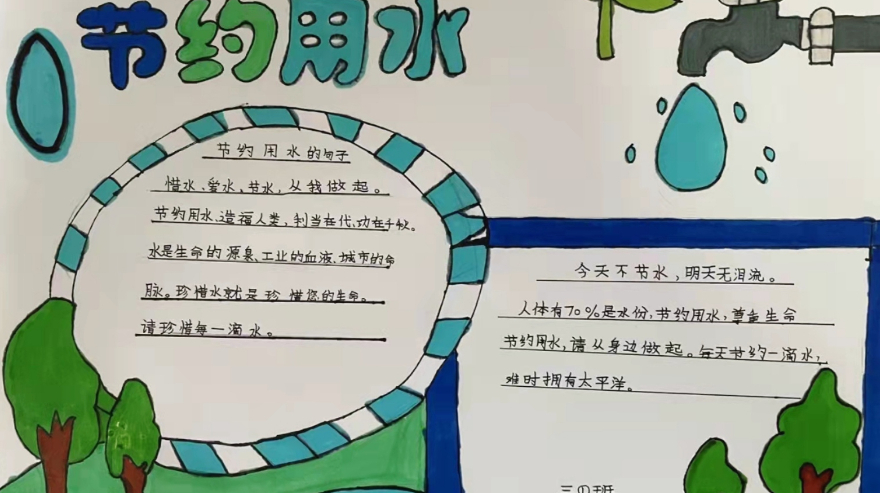 节约用水
节约用水的句子
惜水、爱水、节水，从我做起。
节约用水、造福人类，利当在代、功在千秋。
水是生命的源泉、工业的血液、城市的命
脉。珍惜水就是珍惜您的生命。
请珍惜每一滴水。
今天不节水，明天无泪流。
人体有70%是水份，节约用水，尊重生命
节约用水，请从身边做起。每天节约一滴水，
难时拥有太平洋。